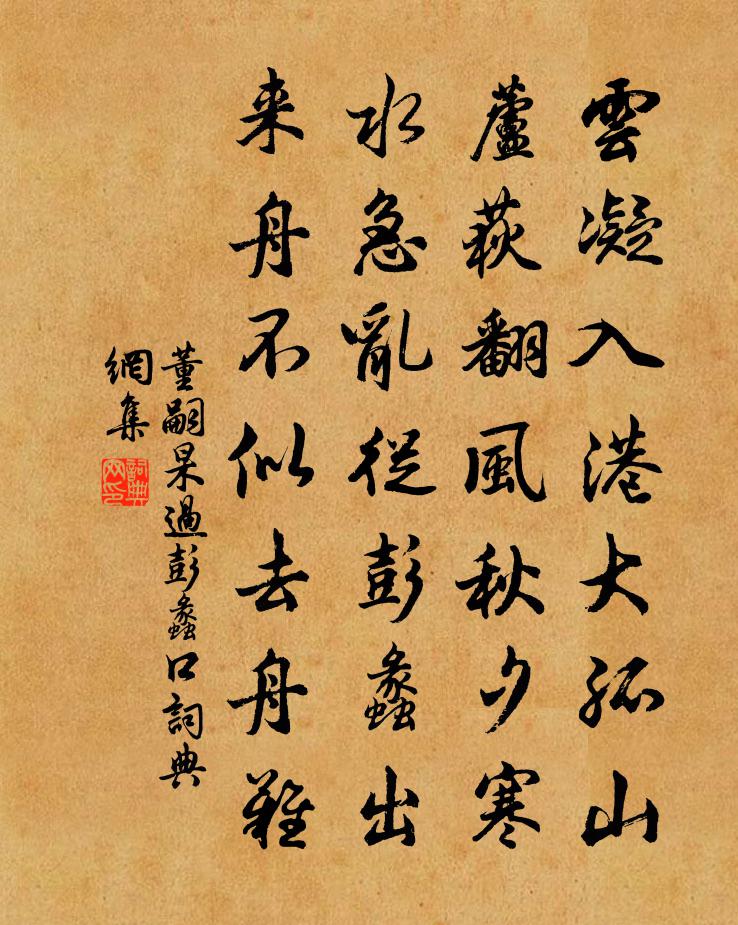 雲凝入港大孤山
蘆荻翻風秋夕寒
水急亂從彭蠡出
来舟不似去舟難
董嗣杲過彭蠡口詞典
網集
詞典网印